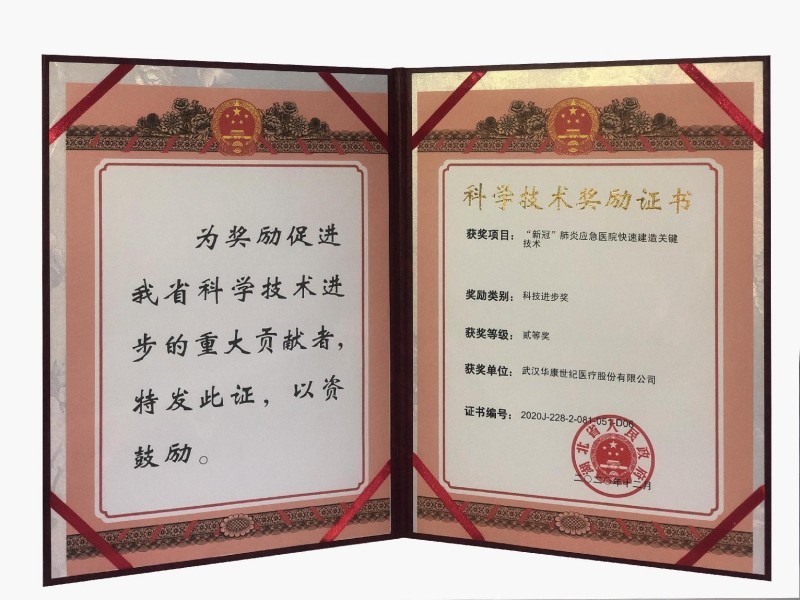 为奖励促进
我省科学技术进
步的重大贡献者，
特发此证，以资
鼓励。
科学技术奖励证书
获奖项目：“新冠”肺炎应急医院快速建造关键
技术
奖励类别：科技进步奖
获奖等级：贰等奖
获奖单位：武汉华康世纪医疗股份有限公司
证书编号：2020J-228-2-081-051-D06
湖北省人民政府
二〇二〇年十二月